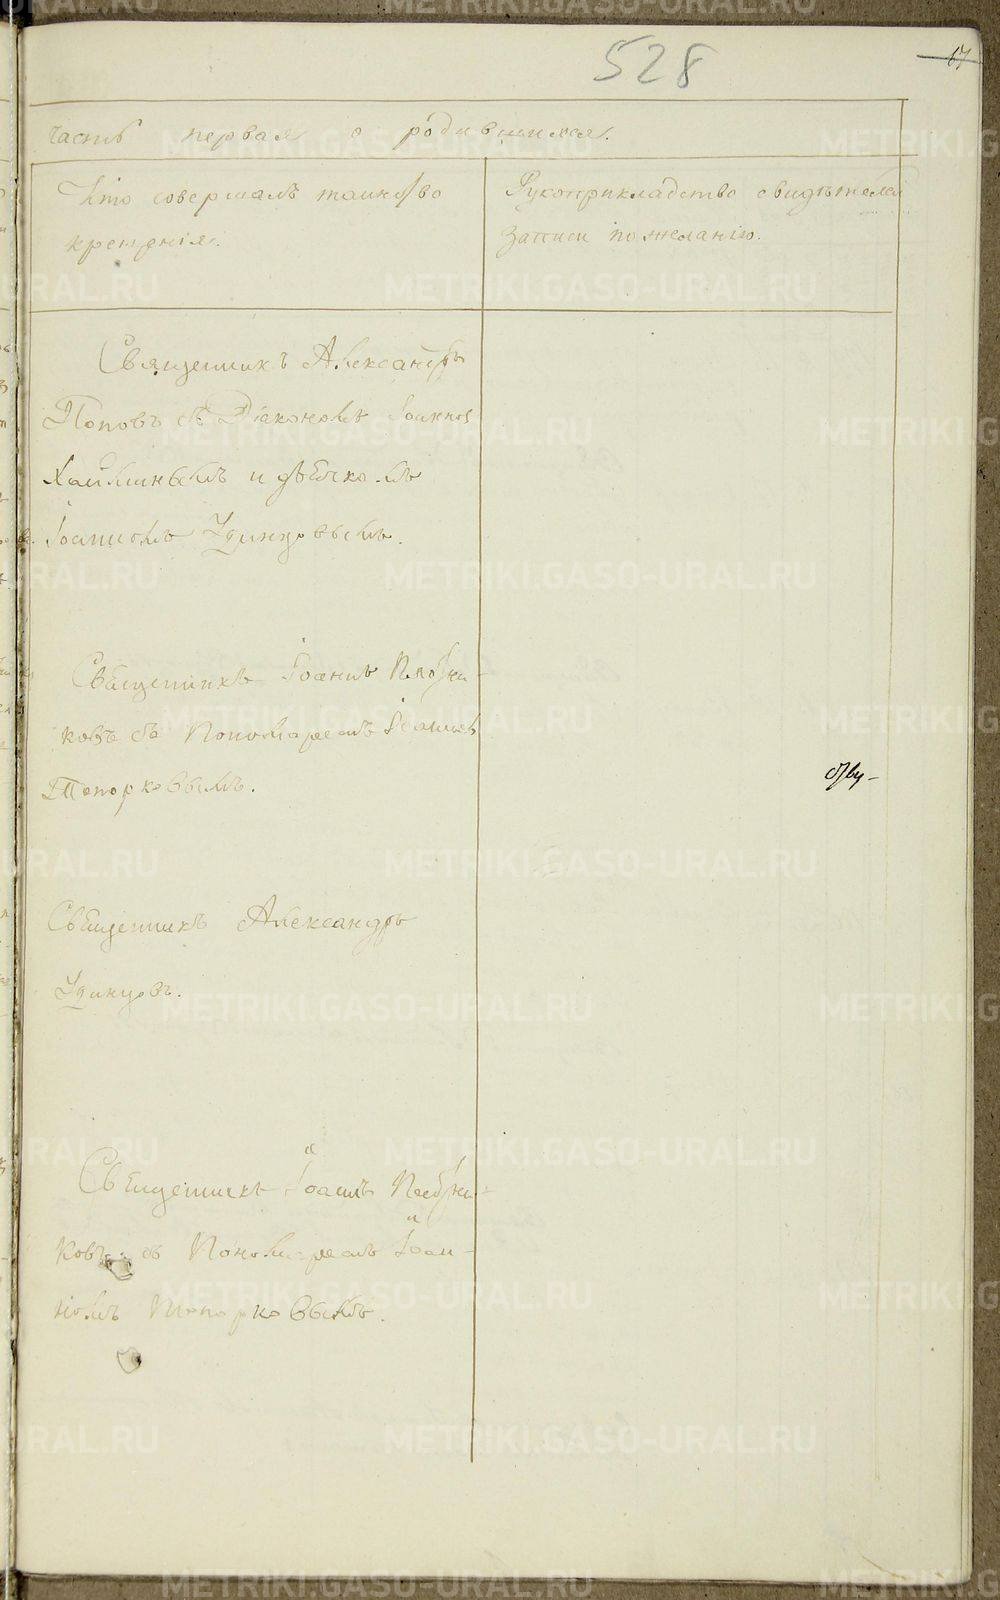 528
67
часть первая о родившихся.
Кто совершалъ таинство
крещенія.
Рукоприкладство свидѣтелей
записи по желанію.
Священникъ Александръ
Поповъ съ Діакономъ Іоанномъ
и дьячкомъ
Іоанномъ Удинцовымъ.
Священникъ Іоаннъ
ковъ съ Пономаремъ Іоанномъ
Топорковымъ.
Священникъ Александръ
Удинцовъ.
Священникъ Іоаннъ
ковъ съ Пономаремъ Іоан-
номъ Топорковымъ.
METRIKI.GASO-URAL.RU